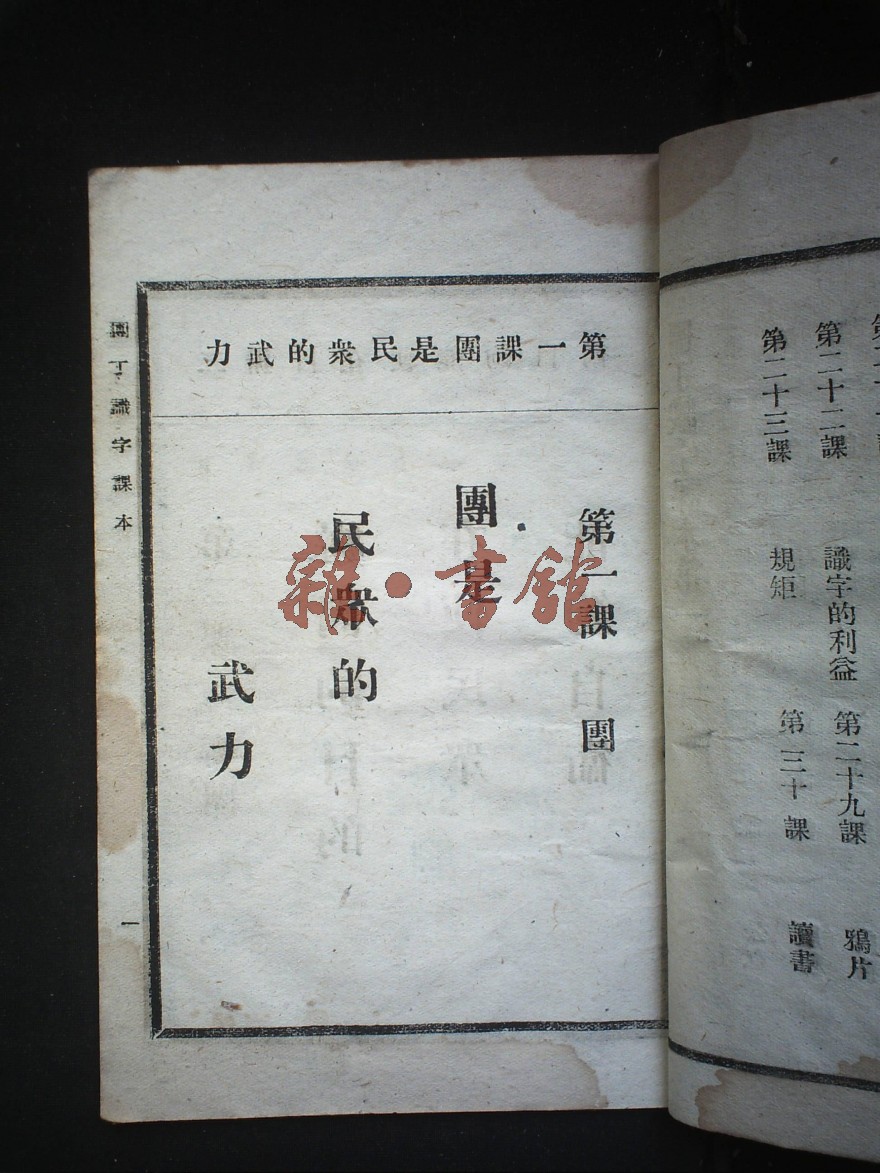 第二十二課
識字的利益
第二十九課
鴉片
第二十三課
規矩
第三十課
讀書
第一課團是民衆的武力
第一課 團
團是
民衆的
武力
團丁識字課本
一
雜·書館